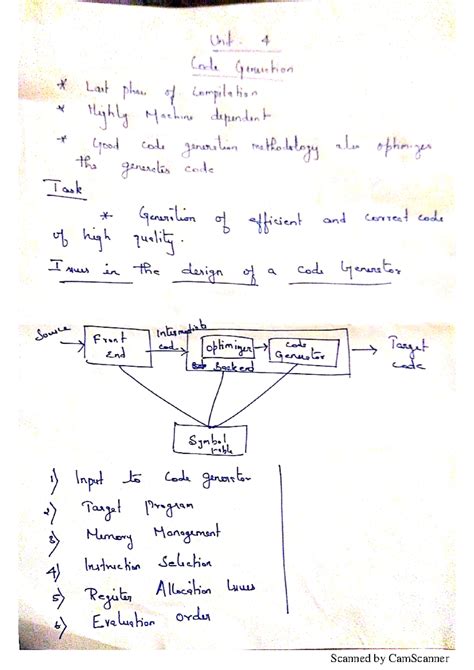 Unit - 4
Code Generation
* Last phase of Compilation
* Highly Machine dependent
* Good code generation methodology also optimizes
the generates code
Task
* Generation of efficient and correct code
of high quality.
Issues in the design of a code Generator
Source
Front End
Intermediate code
optimizer
code Generator
backend
Target code
Symbol table
1) Input to Code generator
2) Target Program
3) Memory Management
4) Instruction Selection
5) Register Allocation Issues
6) Evaluation Order
Scanned by CamScanner